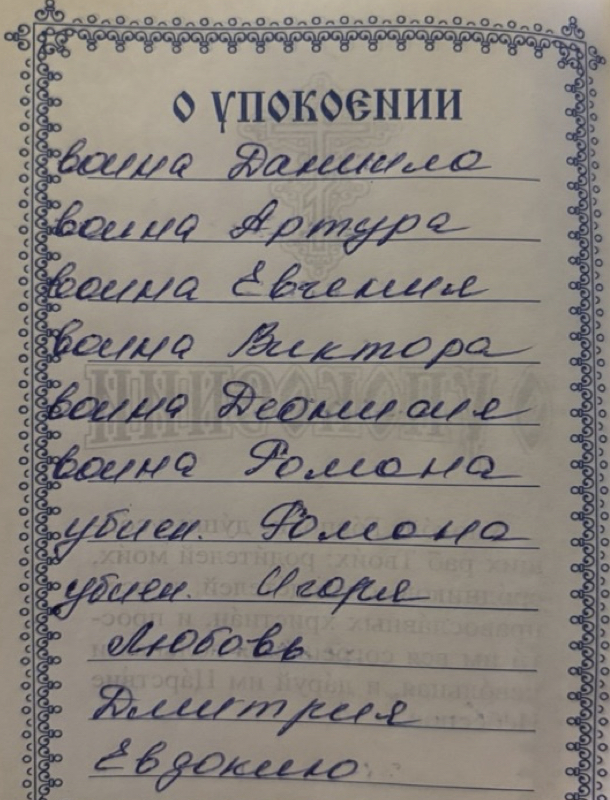 О УПОКОЕНИИ
воина Даниила
воина Артура
воина Евгения
воина Виктора
воина
воина Романа
убиен. Романа
убиен. Игоря
Любовь
Дмитрия
Евдокию